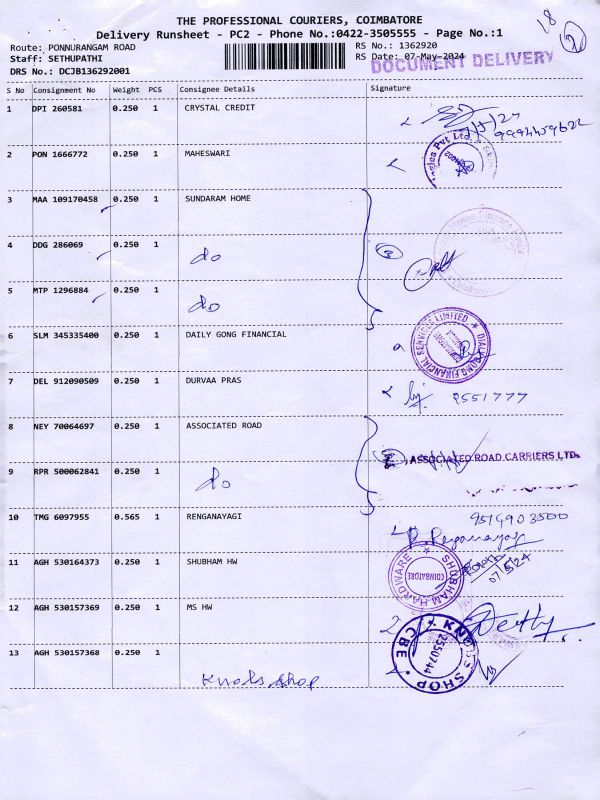 THE PROFESSIONAL COURIERS, COIMBATORE
Delivery Runsheet - PC2 - Phone No.:0422-3505555 - Page No.:1
18
2
Route: PONNURANGAM ROAD
Staff: SETHUPATHI
DRS No.: DCJB136292001
RS No.: 1362920
RS Date: 07-May-2024
DOCUMENT DELIVERY
S No Consignment No Weight PCS Consignee Details Signature
1 DPI 260581 0.250 1 CRYSTAL CREDIT
2 PON 1666772 0.250 1 MAHESWARI
3 MAA 109170458 0.250 1 SUNDARAM HOME
4 DDG 286069 0.250 1 do
3
5 MTP 1296884 0.250 1 do
6 SLM 345335400 0.250 1 DAILY GONG FINANCIAL
FINANCIAL SERVICES LIMITED
7 DEL 912090509 0.250 1 DURVAA PRAS
2551777
8 NEY 70064697 0.250 1 ASSOCIATED ROAD
ASSOCIATED ROAD CARRIERS LTD.
9 RPR 500062841 0.250 1 do
10 TMG 6097955 0.565 1 RENGANAYAGI
9514903500
11 AGH 530164373 0.250 1 SHUBHAM HW
SHUBHAM HARDWARE
COIMBATORE
07/5/24
12 AGH 530157369 0.250 1 MS HW
13 AGH 530157368 0.250 1 Knobs shop
KNOBS SHOP
2550744
CBE